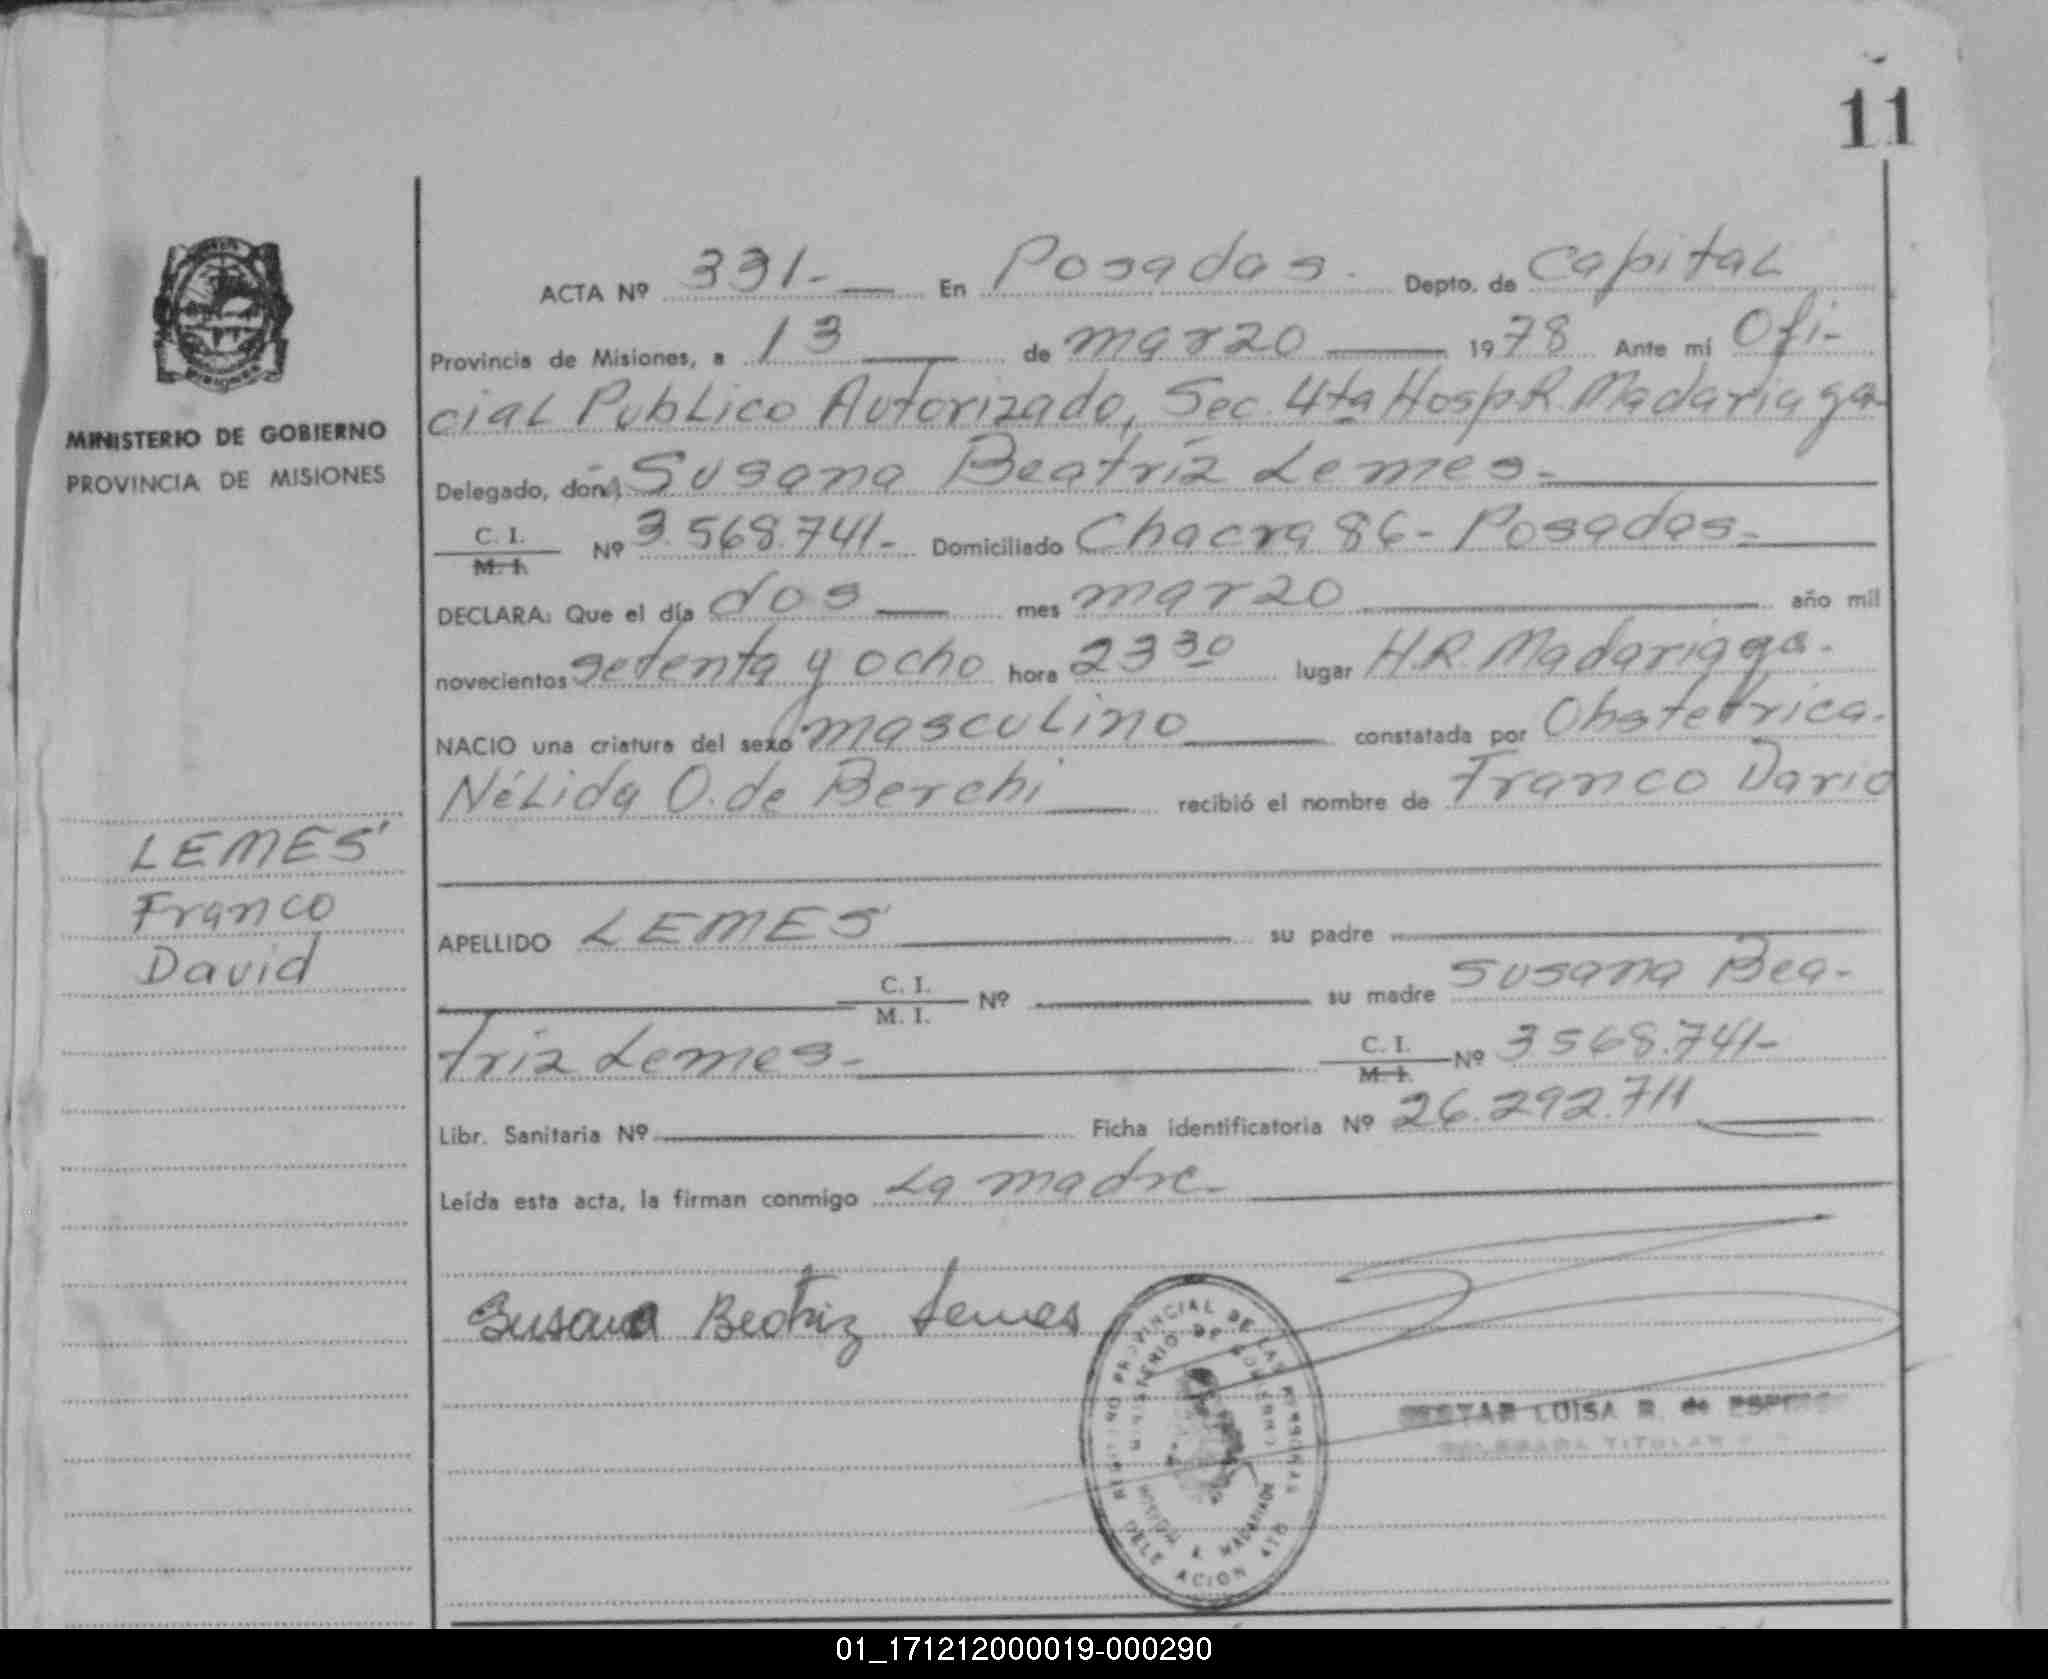 11
ACTA Nº 331.- En Posadas. Depto. de Capital
Provincia de Misiones, a 13 de marzo 1978 Ante mí Ofi-
cial Publico Autorizado, Sec. 4ta Hosp R. Madariaga-
MINISTERIO DE GOBIERNO
PROVINCIA DE MISIONES
Delegado, doña Susana Beatriz Lemes-
C. I.
M. I.
Nº 3.568.741- Domiciliado Chacra 86- Posadas-
DECLARA: Que el día dos mes marzo año mil
novecientos setenta y ocho hora 23 30 lugar H.R. Madariaga.
NACIO una criatura del sexo masculino constatada por Obstetrica.
Nélida O. de Berchi recibió el nombre de Franco Dario
LEMES
Franco
David
APELLIDO LEMES su padre
C. I.
M. I.
Nº su madre Susana Bea-
triz Lemes- C. I.
M. I.
Nº 3568.741-
Libr. Sanitaria Nº Ficha identificatoria Nº 26.292.711
Leída esta acta, la firman conmigo La madre-
Susana Beatriz Lemes
PROVINCIAL DE LAS PERSONAS
MINISTERIO DE GOBIERNO
LUISA R. de
TITULAR
01_171212000019-000290